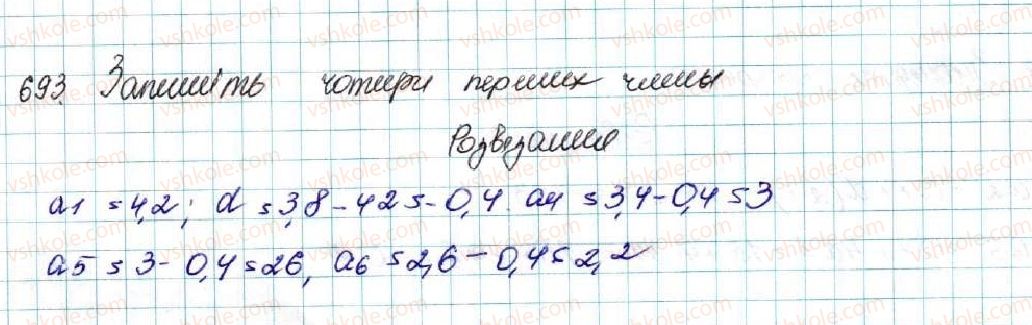 693. Запишіть чотири перших члены
Розвезання
a1 = 4,2; d = 3,8 - 4,2 = - 0,4. a4 = 3,4 - 0,4 = 3
a5 = 3 - 0,4 = 2,6, a6 = 2,6 - 0,4 = 2,2